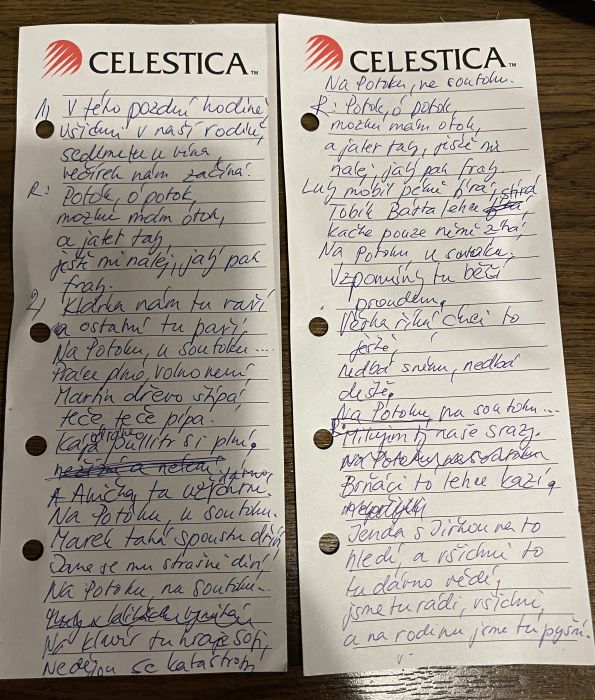 CELESTICA™
1) V této pozdní hodině
všichni v naší rodině,
sedneme u vína,
večírek nám začíná.
R: Potok, ó potok,
mozku mám otok,
a jater tah,
ještě mi nalej, jaký pak
frah.
2) Klárka nám tu vaří
a ostatní tu paří,
Na Potoku, u soutoku...
Práce plno, volno není
Martin dřevo štípá,
teče teče pípa.
Kája půllitr si plní,
A Anička tu
Na Potoku, u soutoku.
Marek tahá spoustu dříví,
Jana se mu strašně diví,
Na Potoku, na soutoku...
Na klavír tu hraje Sofi,
Nedějou se katastrofy,
CELESTICA™
Na Potoku, na soutoku.
R: Potok, ó potok,
mozku mám otok,
a jater tah, ještě mi
nalej, jaký pak frah.
Luky mobil pěkně stírá
Tobík Bárta lehce
Kačka pouze němě zírá,
Na Potoku, u soutoku.
Vzpomínky tu běží
proudem.
Věrka říká chci to
ještě,
nedbá sněhu, nedbá
deště.
Na Potoku, na soutoku...
Milujem ty naše srazy.
Na Potoku, na soutoku
Brňáci to lehce kazí,
Jenda s Jirkou na to
hledí, a všichni to
tu dávno vědí,
jsme tu rádi, všichni,
a na rodinu jsme tu pyšní.